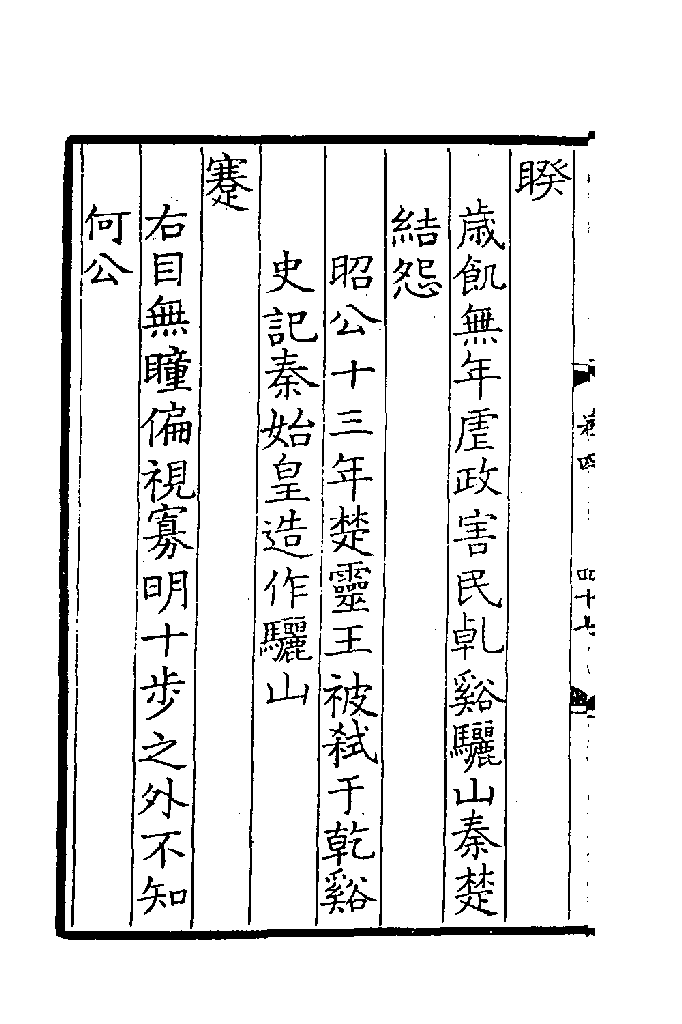 睽
歳飢無年虐政害民乹谿驪山秦楚
結怨
昭公十三年楚靈王被弑于乾谿
史記秦始皇造作驪山
蹇
右目無瞳偏視寡明十步之外不知
何公
卷四
四十七